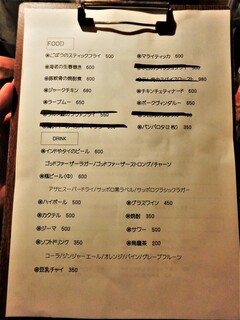 FOOD
◉ごぼうのスティックフライ 500
◉マライティッカ 600
◉海老の生春巻き 600
◉豚軟骨の焼酎煮 600
◉ジャークチキン 680
◉チキンチェティナード 600
◉ラープムー 650
◉ポークヴィンダルー 650
◉パンパロタ(2枚) 350
DRINK
◉インドやタイのビール 600
ゴッドファーザーラガー/ゴッドファーザーストロング/チャーン
◉瓶ビール(中) 600
アサヒスーパードライ/サッポロ黒ラベル/サッポロクラシックラガー
◉ハイボール 500
◉グラスワイン 450
◉カクテル 500
◉焼酎 350
◉ジーマ 500
◉サワー 500
◉ソフトドリンク 350
◉烏龍茶 200
コーラ/ジンジャーエール/オレンジ/パイン/グレープフルーツ
◉豆乳チャイ 350